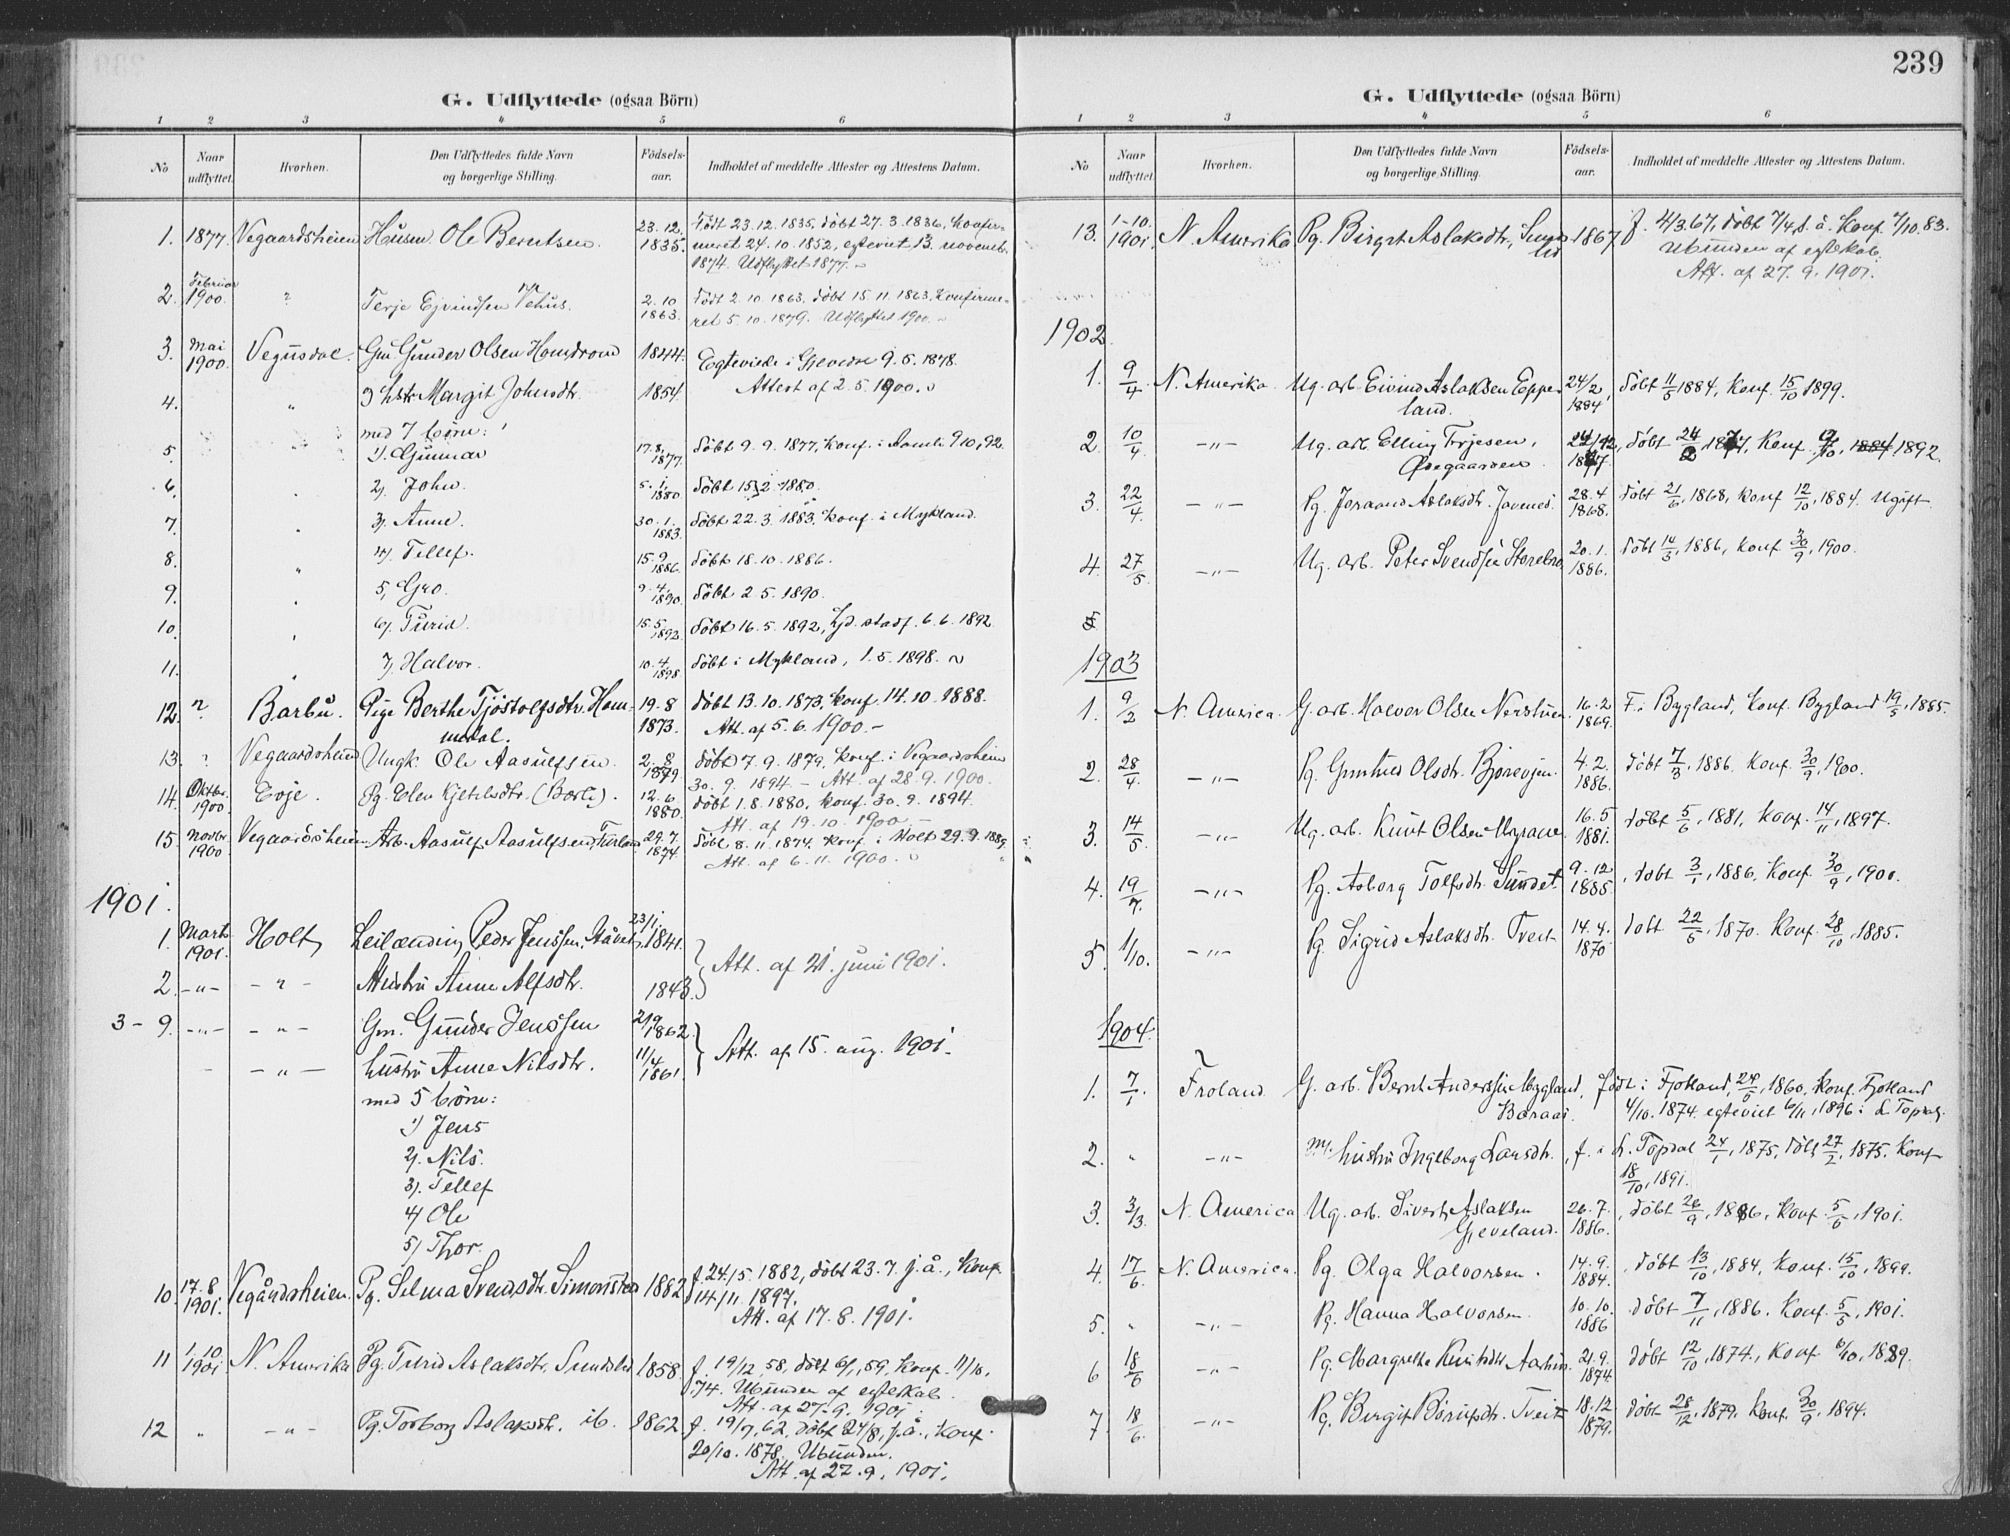 G. Udflyttede (ogsaa Börn)
1 2 3 4 5 6
No Naar udflyttet. Hvorhen. Den Udflyttedes fulde Navn og borgerlige Stilling. Födsels-aar. Indholdet af meddelte Attester og Attestens Datum.
1. 1877. Vegaardsheien Husm. Ole Berntsen. 23.12. 1835. Født 23.12.1835. døbt 27.3.1836, Konfir-
meret 24.10.1852, egteviet 13. novembr.
1874. Udflyttet 1877.
2. Februar 1900. " Terje Ejvindsen Vehus. 2.10 1863. født 2.10.1863. døbt 15.11.1863, Konfirme-
ret 5.10.1879. Udflyttet 1900.
3. Mai 1900. Vegusdal. Gm. Gunder Olsen Homdrom 1844. Egteviede i Gjevedn 9.5.1878.
4. " Hstr. Margit Johnsdtr. 1854. Attest af 2.5.1900.
med 7 börn:
5. 1). Gunnar 17.8. 1877. døbt 9.9.1877, konf. i Aamli 9/10, 92.
6. 2). John. 5.1. 1880. døbt 15/2 1880.
7. 3). Anne. 30.1. 1883. døbt 22.3.1883, konf. i Mykland.
8. " 4). Tellef. 15.9. 1886. døbt 18.10.1886.
9. 5, Gro. 9.4. 1890. døbt 2.5.1890.
10. 6). Turid. 15.5. 1892. døbt 16.5.1892, hjd. stadf. 6.6.1892.
11. 7) Halvor. 10.4. 1898 døbt i Mykland, 1.5.1898.
12. " Barbu. Pige Berthe Tjöstolfsdtr. Hom- 19.8 1873. døbt 13.10.1873, konf. 14.10.1888.
Att. af 5.6.1900.
13. " Vegaardsheien Ungk. Ole Aasulfsen 2.8 1879 døbt 7.9.1879, konf. i Vegaardsheien
30.9.1894 – Att. af 28.9.1900.
14. Oktbr. 1900. Evje. Pg. Elen Kjetilsdtr. 12.6 1880. døbt 1.8.1880, konf. 30.9.1894.
Att. af 19.10.1900
15. Novbr. 1900 Vegaardsheien Arb. Aasulf Aasulfsen 29.7 1874 døbt 8.11.1874. konf. i Holt 29.9.1889.
Att. af 6.11.1900.
1901.
1. Marts 1901. Holt, Leilænding Peder Jenssen, 23/1. 1841.
Att. af 21. juni 1901.
2. -"- -"- Hustru Anne Alfsdtr. 1843.
3-9. -"- -"- Gm. Gunder Jenssen 2/9 1862
Att. af 15. aug. 1901.
-"- hustru Anne Nilsdtr. 11/4 1861.
med 5 börn:
1) Jens
2). Nils.
3). Tellef
4) Ole
5) Thor.
10. 17.8. 1901. Vegårdsheien. Pg. Selma Svendsdtr. Simonstad 1882 f. 24/5. 1882, døbt 23.7. s.å., konf.
14/11. 1897.
Att. af 17.8.1901.
11 1.10 1901 N. Amerika Pg. Turid Aslaksdtr. Sundslid 1858. f. 19/12, 58, døbt 6/1, 59, konf. 11/10.
74. Ubunden af egteskab.
Att. af 27.9.1901.
12 " -"- Pg. Torborg Aslaksdtr. ib. 1862. f. 19/7, 62, døbt 24/8, s.å., konf.
20/10. 1878, Ubunden.
Att. af 27.9.1901.
239
G. Udflyttede (ogsaa Börn)
1 2 3 4 5 6
No Naar udflyttet. Hvorhen. Den Udflyttedes fulde Navn og borgerlige Stilling. Födsels-aar. Indholdet af meddelte Attester og Attestens Datum.
13. 1-10. 1901 N. Amerika Pg. Birgit Aslaksdtr, Sunds-lid 1867 f. 4/3.67, døbt 7/4, s.å. Konf. 7/10. 83.
Ubunden af egteskab.
Att. af 27.9.1901.
1902.
1. 9/4 N. Amerika. Ug. arb. Eivind Aslaksen Eppe-land. 24/2 1884 døbt 11/5 1884, konf. 15/10 1899.
2 10/4 -"- Ug. arb. Elling Terjesen, Ødegaarden døbt konf. 1892.
3. 22/4 -"- Pg. Joraand Aslaksdtr. 28.4 1868. døbt 21/6, 1868, konf 12/10, 1884. Ugift
4. 27/5. -"- Ug. arb. Peter Svendsen 20.1. 1886. døbt 14/3, 1886, konf 30/9, 1900.
5
1903
1. 9/2 N. America. G. arb. Halvor Olsen 16.2 1869. F. i Bygland, konf. Bygland 19/5, 1885.
2. 28/4. -"- Pg. Gunhild Olsdtr. 4.2. 1886. døbt 7/3, 1886. Konf. 30/9, 1900.
3. 14/5. -"- Ug. arb. Knut Olsen 16.5 1881. døbt 5/6, 1881, konf. 14/11, 1897.
4. 19/7. -"- Pg. Asborg Tolfsdtr. Sundet. 9.12 1885 døbt 3/1, 1886, konf. 30/9, 1900.
5. 1/10. -"- Pg. Sigrid Aslaksdtr. Tveit 14.4. 1870 døbt 22/5, 1870. konf. 28/10, 1885.
1904.
1. 7/1. Froland. G. arb. Bernt Anderssen Mygland, født i Fjotland, 1860, konf. Fjotland
4/10. 1874. egteviet 6/11, 1896 i
2. " -"- hustru Ingeborg Larsdtr. f. i Topdal 24/1, 1875, døbt 27/2, 1875. Konf
18/10, 1891.
3. 3/3. N. America Ug. arb. Sivert Aslaksen Gjeveland. 26.7. 1886. døbt 26/9, 1886, konf. 5/5, 1901.
4. 17/6 N. America. Pg. Olga Halvorsen. 14.9. 1884. døbt 13/10, 1884, konf. 15/10, 1899.
5. " -"- Pg. Hanna Halvorsen. 10.10. 1886 døbt 7/11, 1886. konf. 5/5, 1901.
6 18/6 -"- Pg. Margrethe Knutsdtr 21.9. 1874. døbt 12/10, 1874, konf 6/10, 1889.
7 18/6. -"- Pg. Birgit Tveit 18.12 1879. døbt 28/12, 1879. konf. 30/9, 1894.